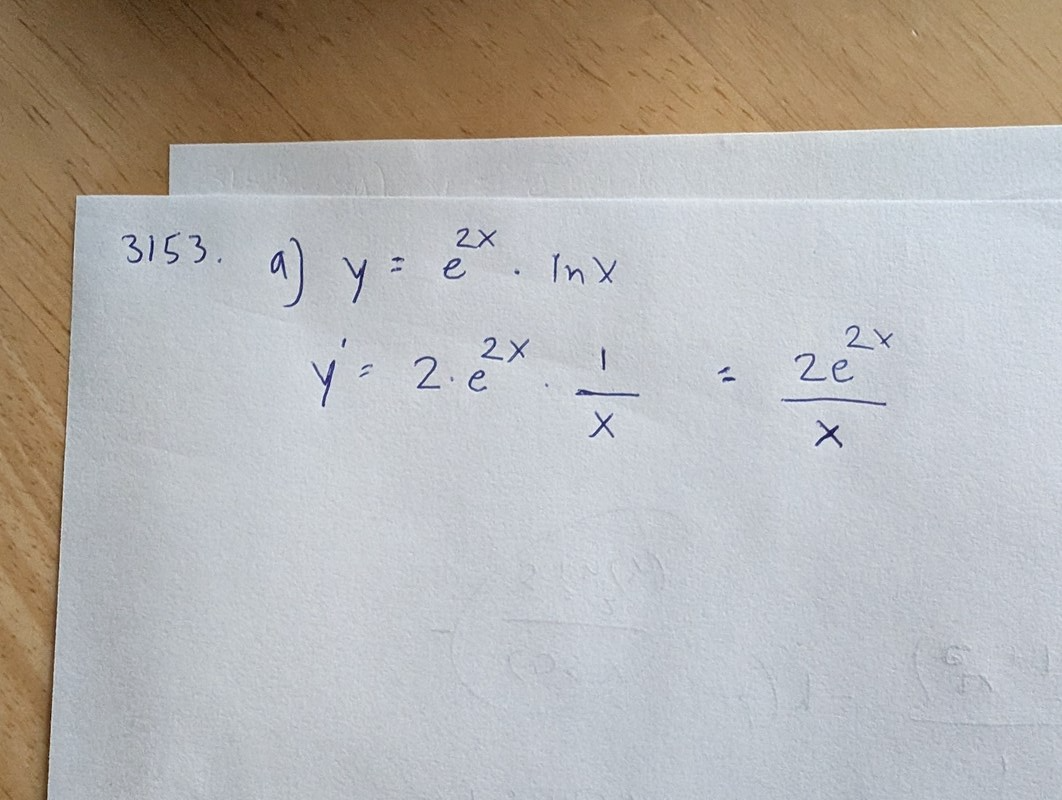 3153. a) y = e^{2x} · ln x
y' = 2 · e^{2x} · \frac{1}{x} = \frac{2e^{2x}}{x}